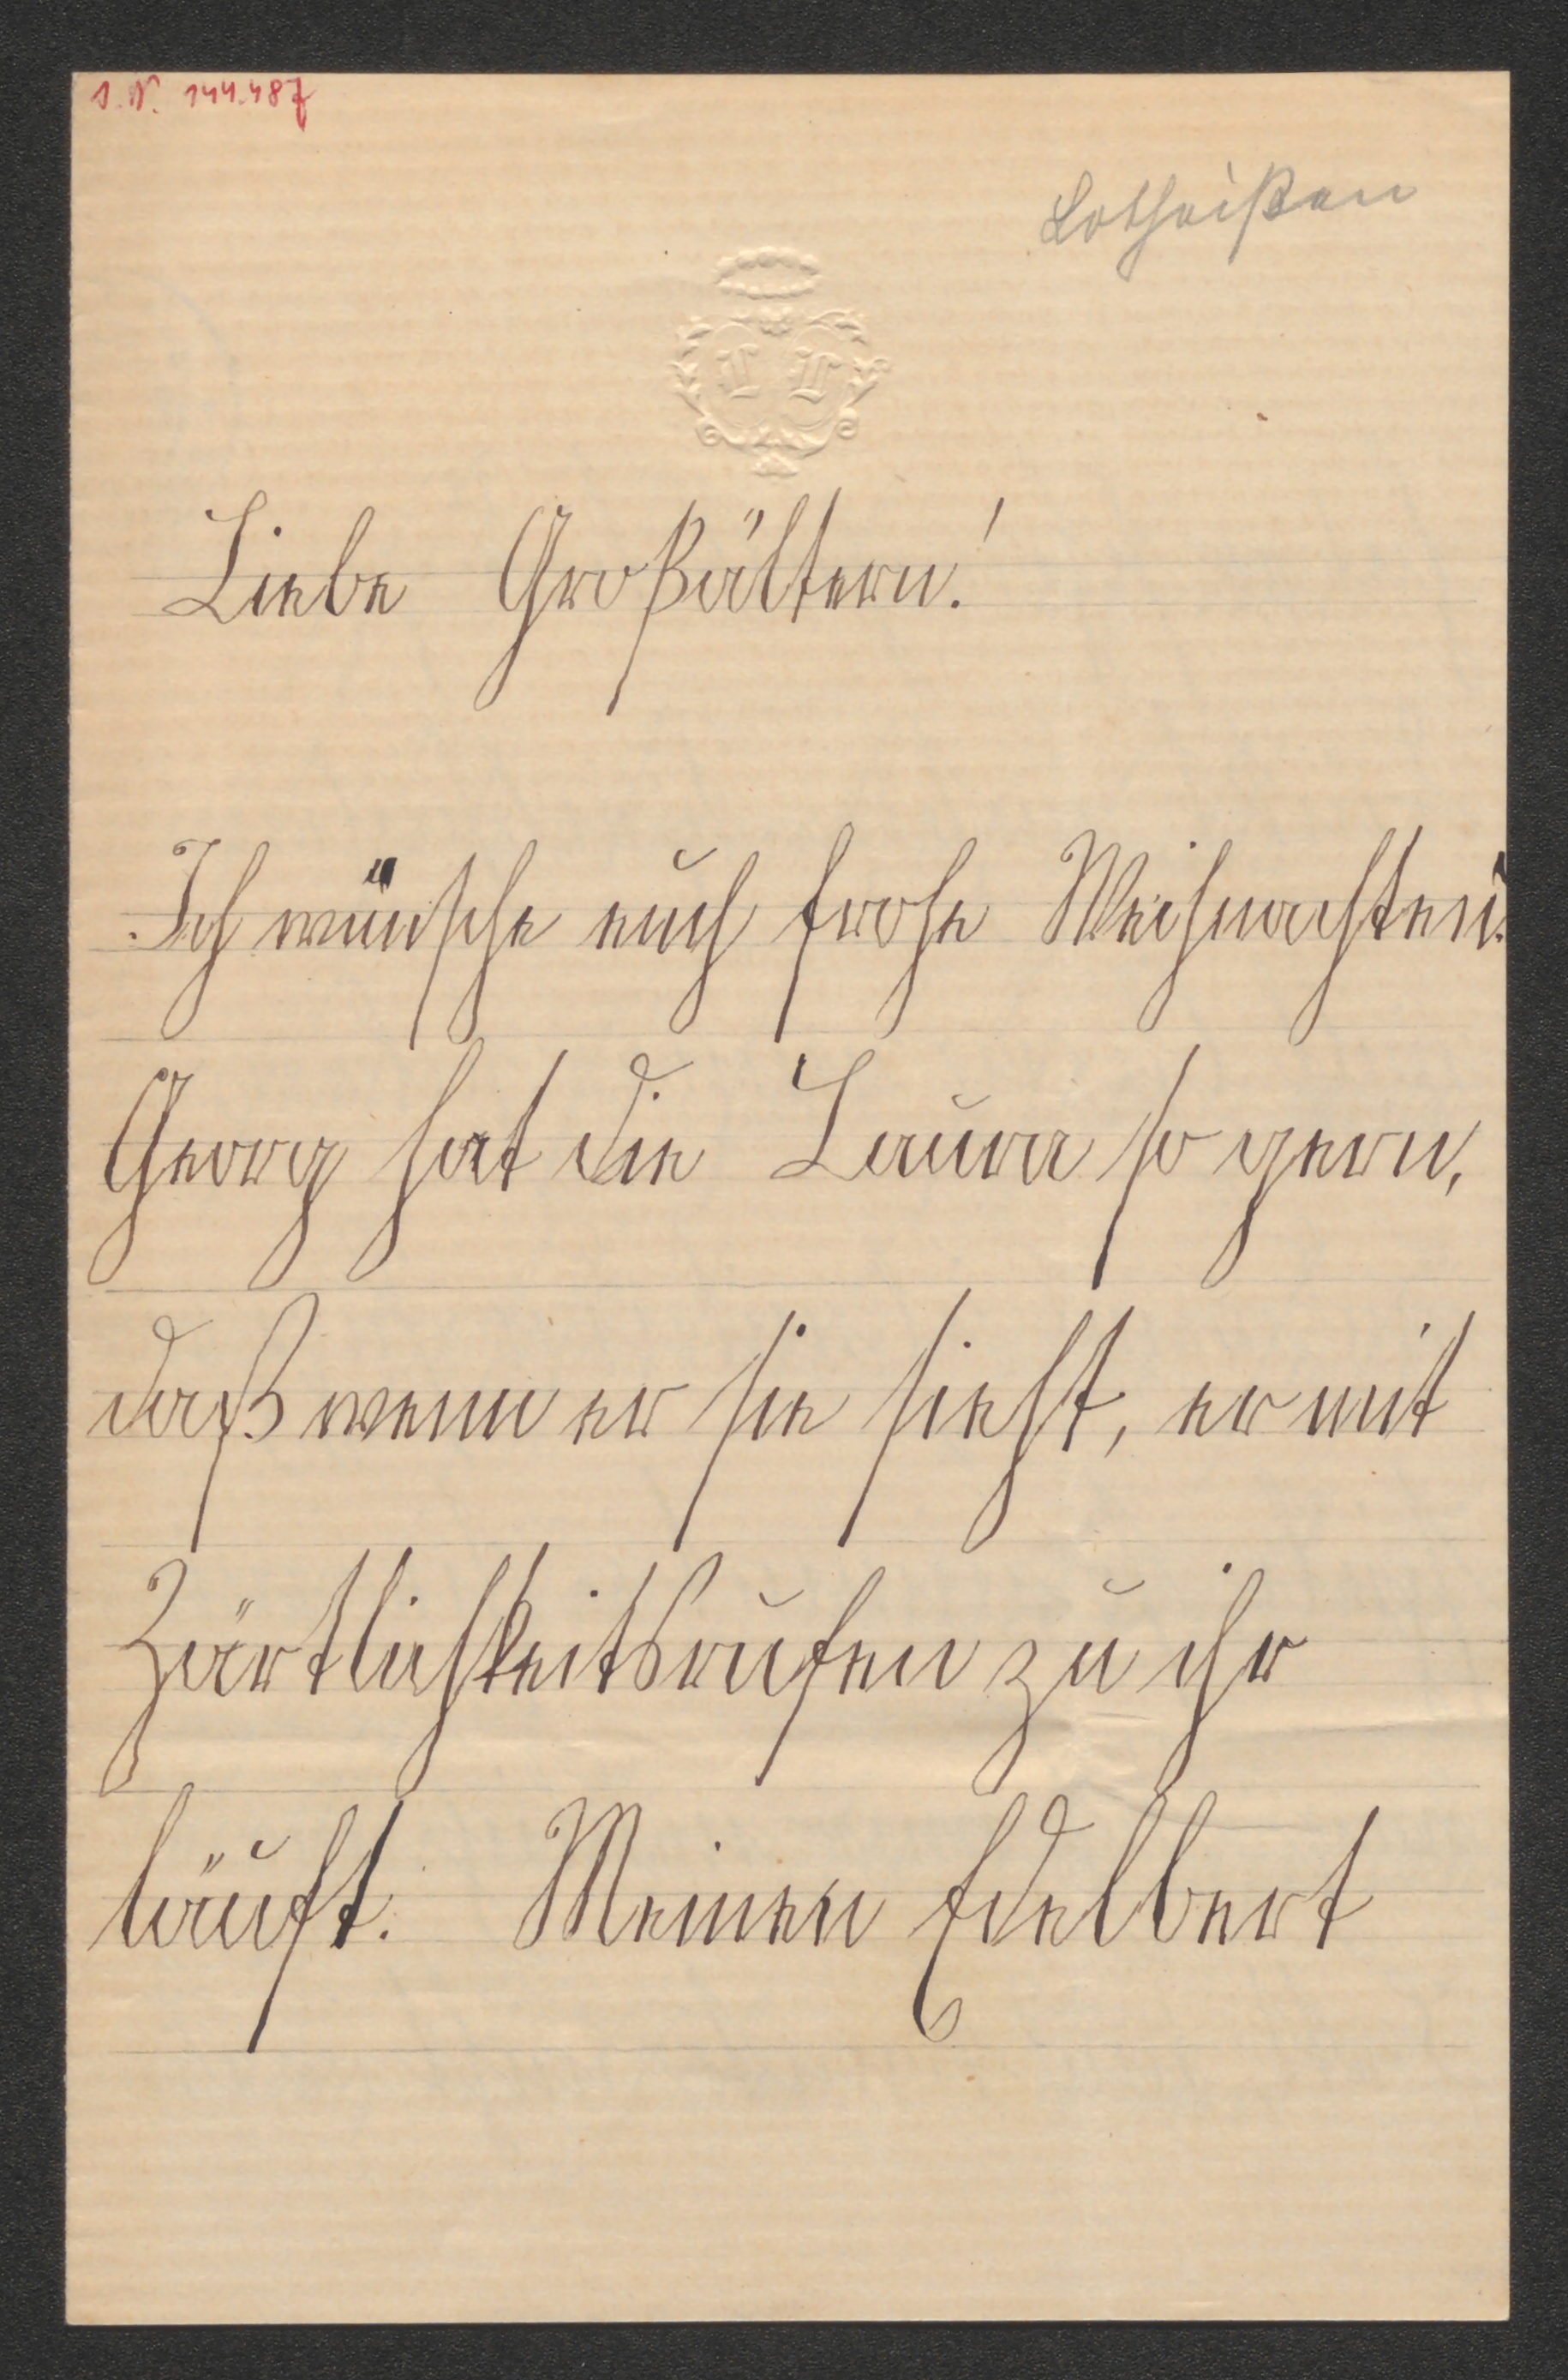 I. N. 144.487
Lotheißen
L L
Liebe Großältern!
Ich wünsche euch frohe Weihnachten.
Georg hat die Laura so gern,
daß wenn er sie sieht, er mit
Zärtlichkeitsrufen zu ihr
läuft. Meinen Edelbert